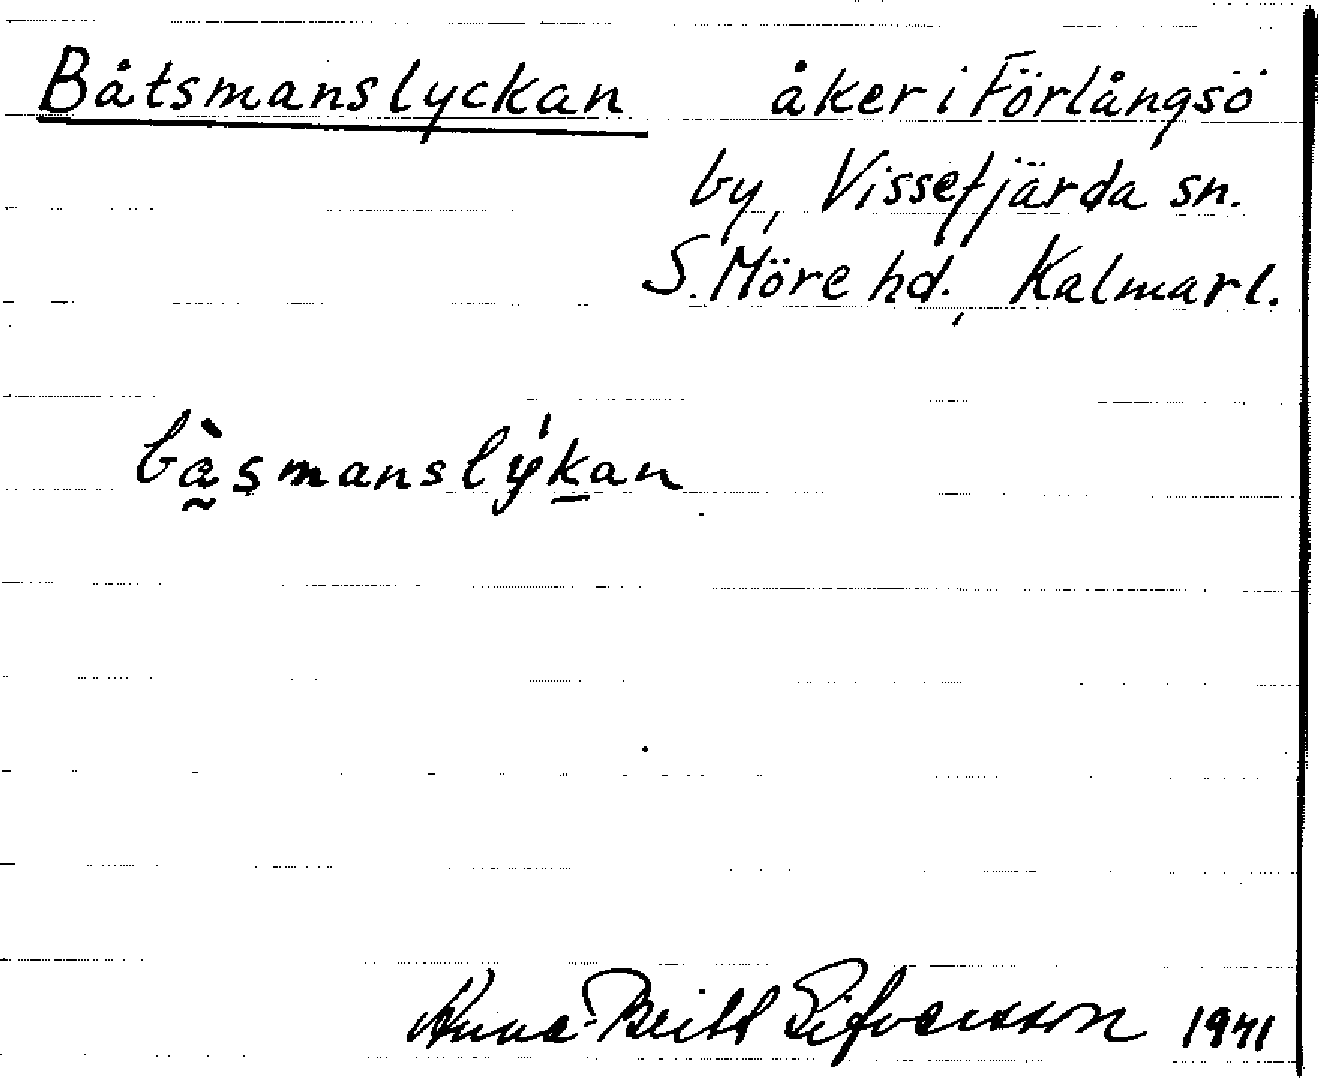 Båtsmanslyckan åker i Förlångsö
by, Vissefjärda sn.
S. Möre hd., Kalmarl.
bàsmanslýkan
Anna-Britt Sifversson 1941